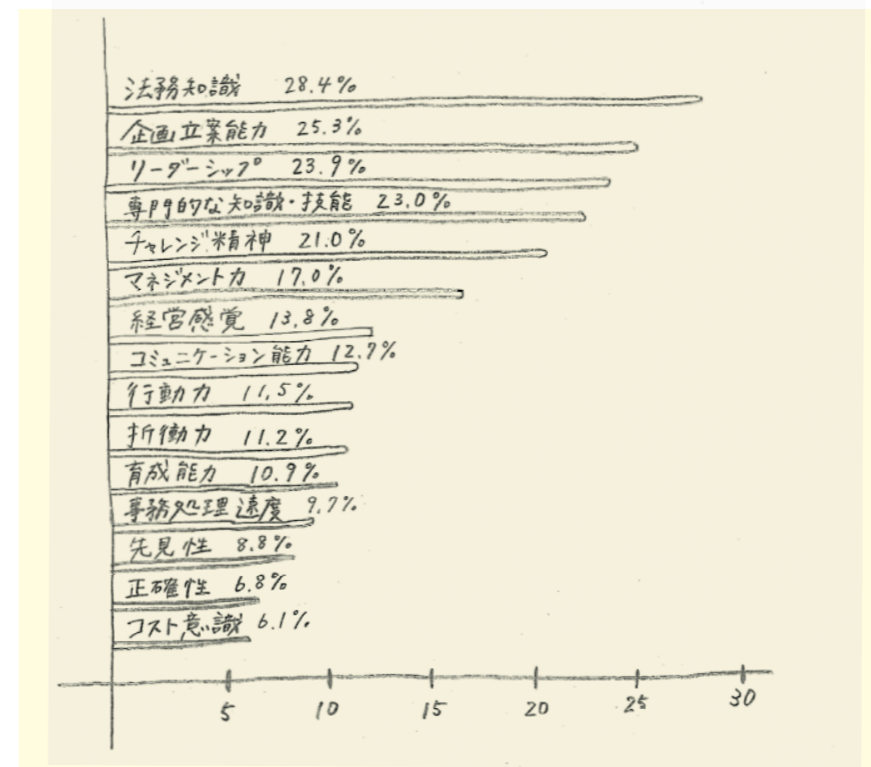 法務知識 28.4%
企画立案能力 25.3%
リーダーシップ 23.9%
専門的な知識・技能 23.0%
チャレンジ精神 21.0%
マネジメント力 17.0%
経営感覚 13.8%
コミュニケーション能力 12.7%
行動力 11.5%
折働力 11.2%
育成能力 10.9%
事務処理速度 9.7%
先見性 8.8%
正確性 6.8%
コスト意識 6.1%
5 10 15 20 25 30